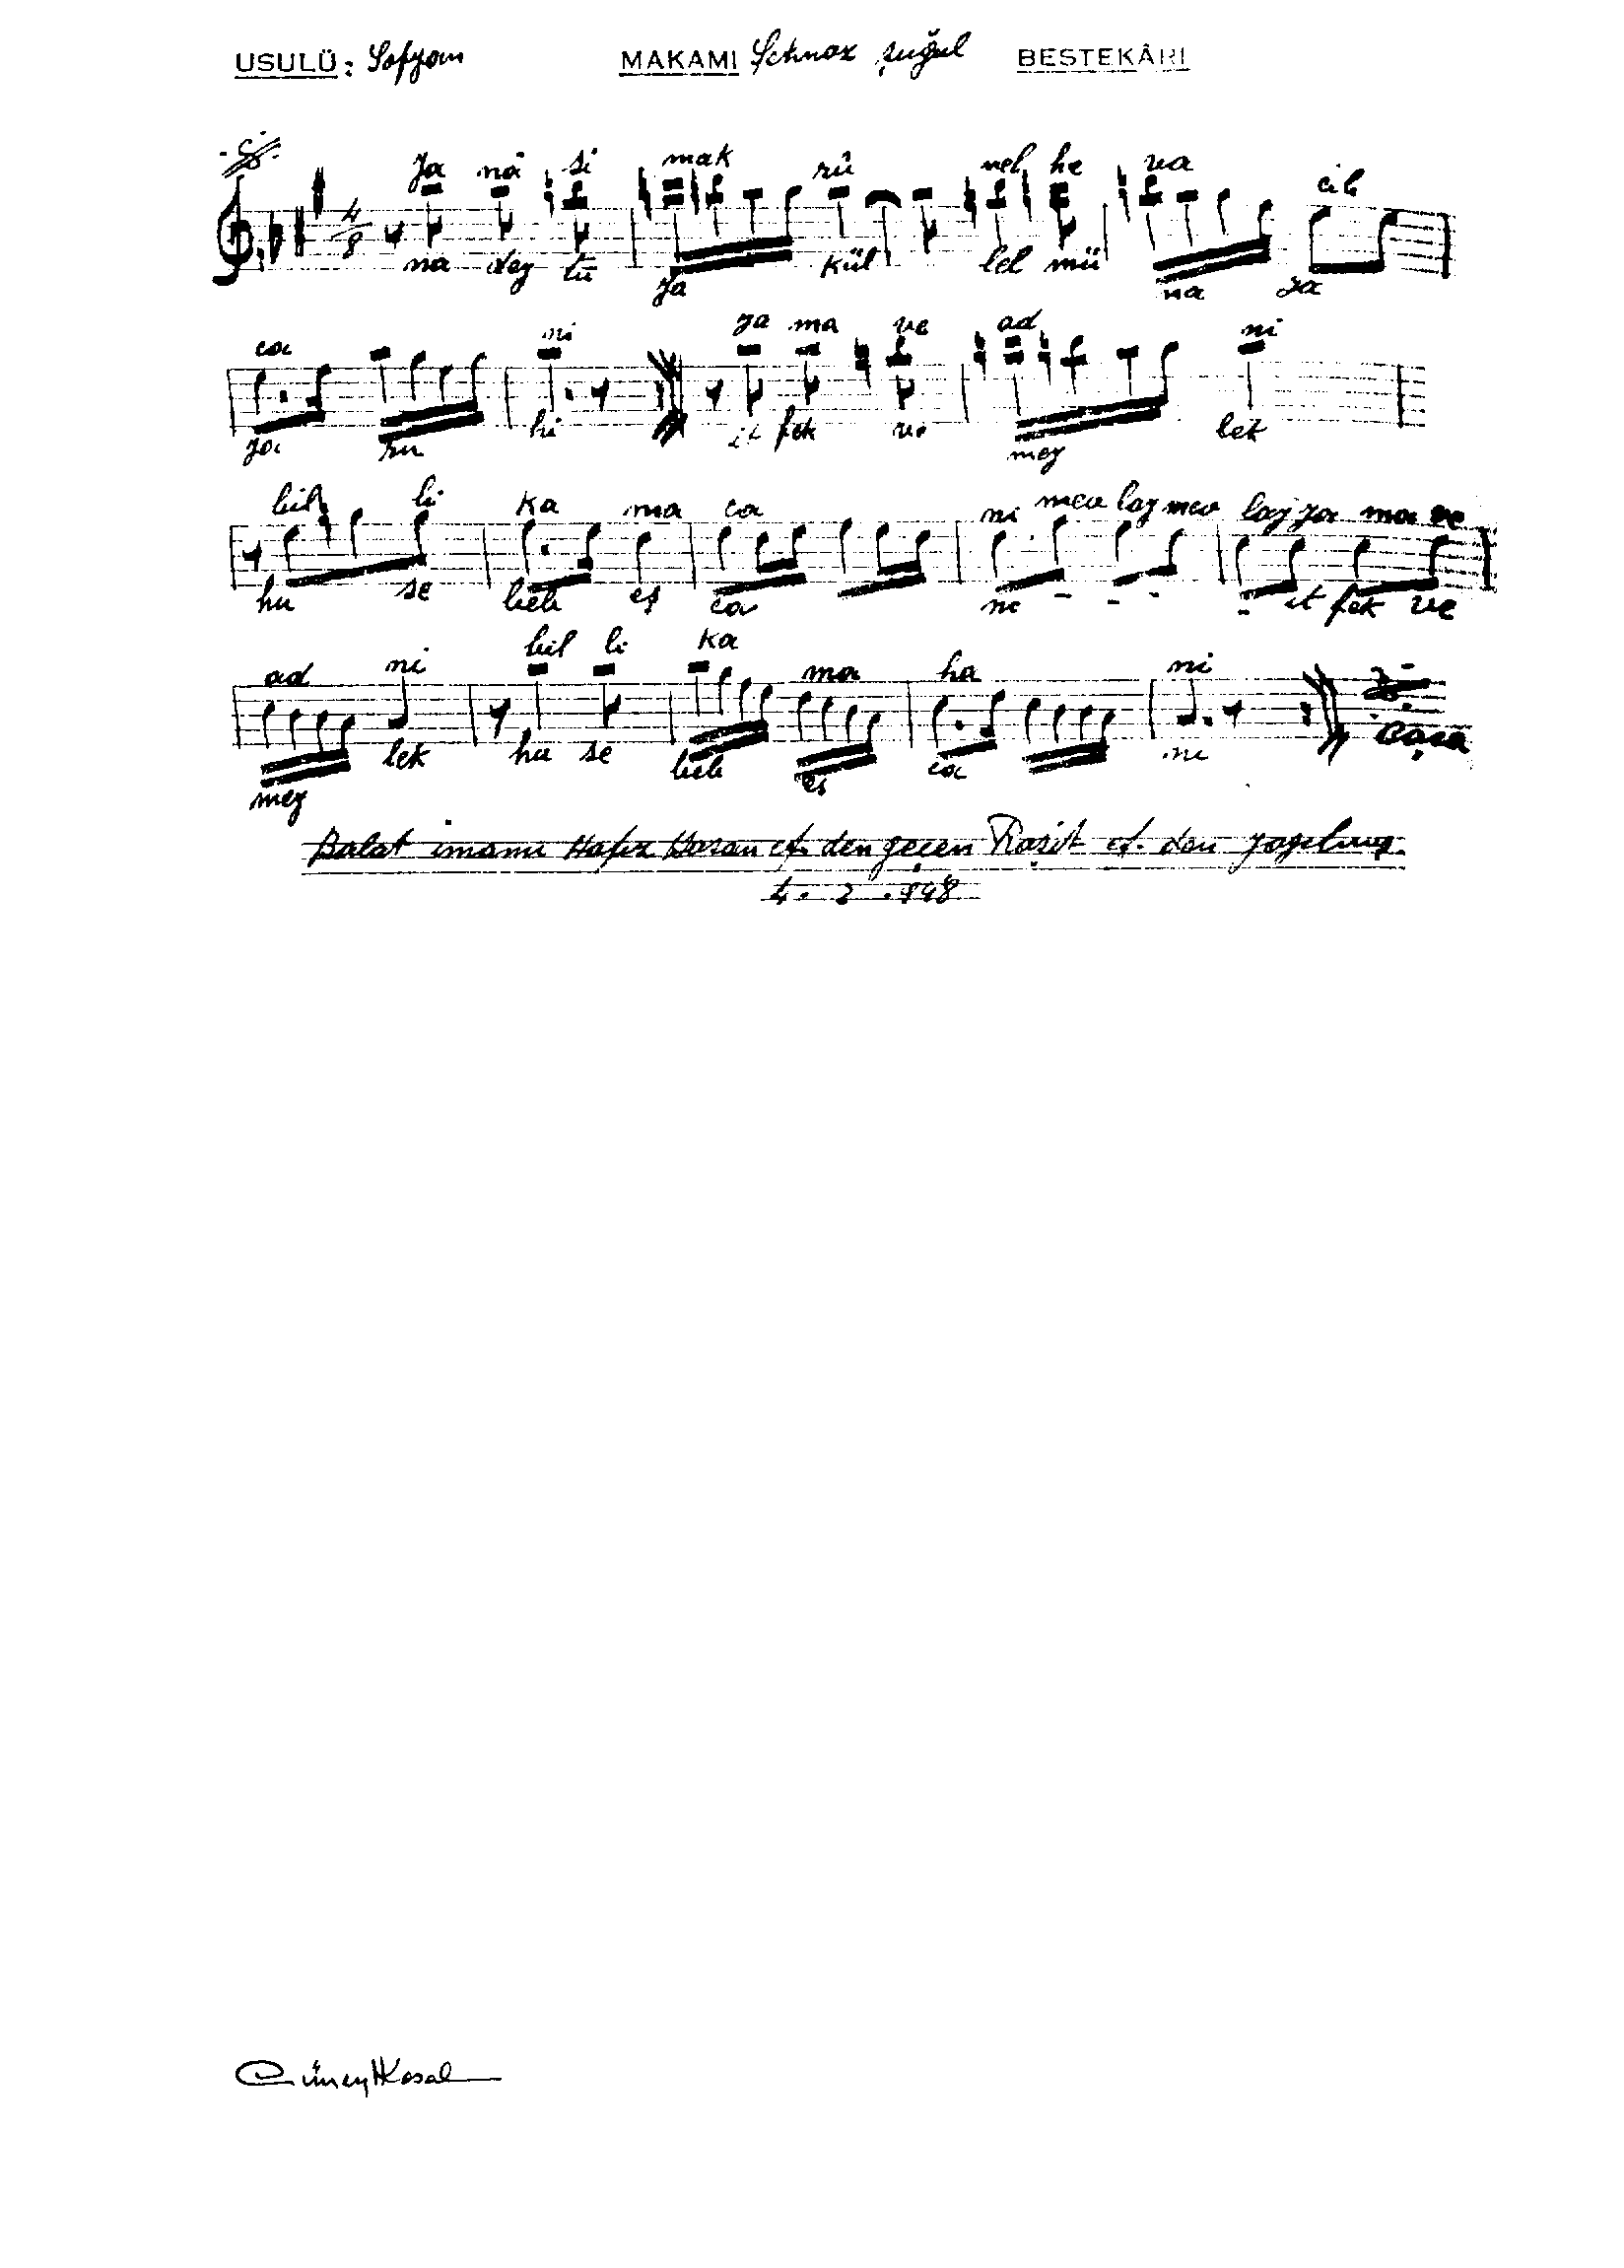 USULÜ : Sofyan MAKAMI Şehnaz şuğul BESTEKÂRI
4/8
Ja nâ si mak rû nel he va cib
na dey tü Ja kül lel mü na ja
ca ni ja ma ve ad ni
ja ru hi it fek ve mey lek
bil li ka ma ca ni mev lay mev lay ja ma ve
hu se beb eş ca ni - - - - it fek ve
ad ni bil li ka ma ha ni
mey lek hu se beb eş ca ni
Balat imamı Hafız Hasan ef. den geçen Raşit ef. den yazılmış.
4 . 2 . 948
Cüneyt Kosal